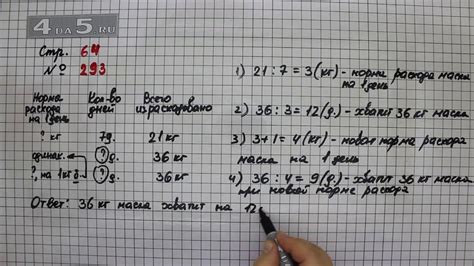 4 DA 5.RU
Стр. 64
№ 293
Норма расхода на 1 день
Кол-во дней
Всего израсходовано
? кг 7д. 21 кг
одинак. ? д. 36 кг
?, на 1 кг б. ? д. 36 кг
Ответ: 36 кг масла хватит на 12
1) 21 : 7 = 3 (кг) - норма расхода масла
на 1 день
2) 36 : 3 = 12 (д.) - хватит 36 кг масла
3) 3 + 1 = 4 (кг) - новая норма расхода
масла на 1 день
4) 36 : 4 = 9 (д.) - хватит 36 кг масла
при новой норме расхода